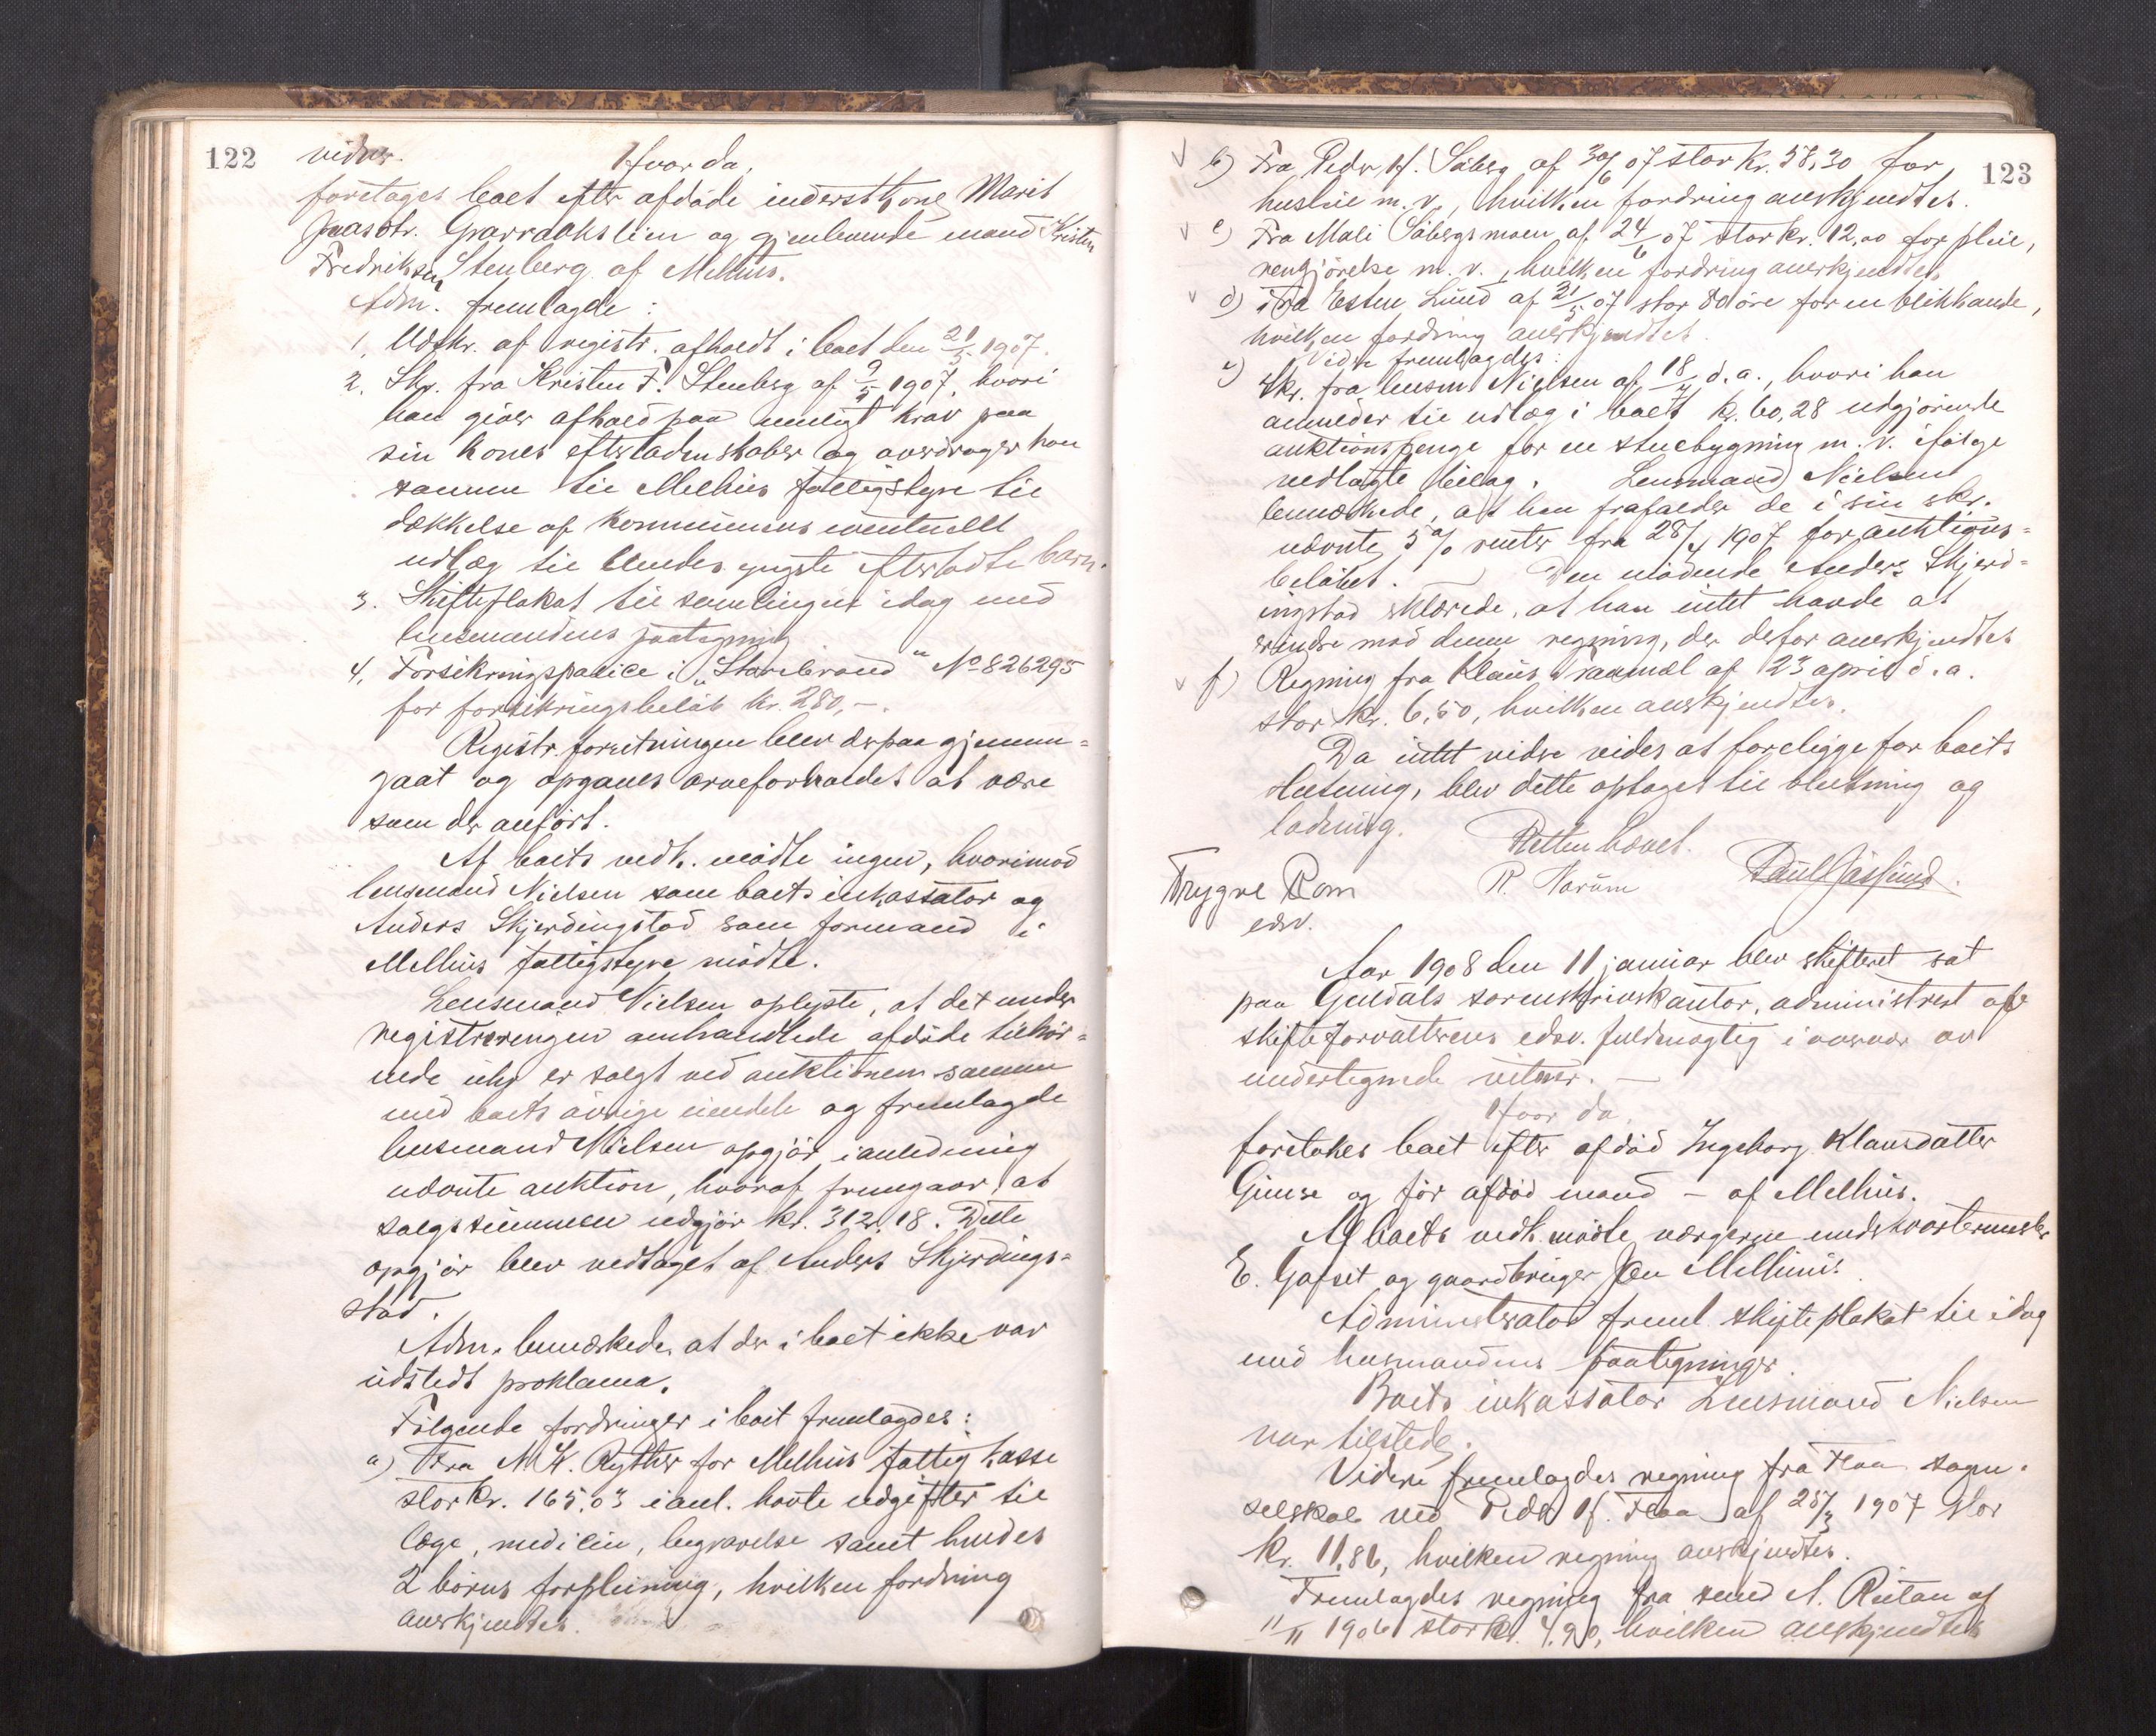 122
vidner.
Hvorda
foretages boet efter afdøde inderstkone Marit
Jonasdtr. Gravraakslien og gjenlevende mand Kristen
Fredriksen Stenberg af Melhus.
Adm. fremlagde:
1. Udskr. af registr. afholdt i boet den 21/5 1907.
2. Skr. fra Kristen F. Stenberg af 9/5 1907, hvori
han giver afkald paa muligt krav paa
sin kones efterladenskaber og overdrager han
samme til Melhus fattigstyre til
dækkelse af kommunens eventuellt
udlæg til hendes yngste efterladte barn.
3. Skifteplakat til samlingen idag med
lensmandens paategning
4. Forsikringspolice i "Storebrand" No 826295
for forsikringsbeløb kr. 280,-.
Registr.forretningen blev derpaa gjennem-
gaat og opgaves arveforholdet at være
som der anført.
Af boets vedk. mødte ingen, hvorimod
lensmand Nielsen som boets inkassator og
Anders Skjerdingstad som formand i
Melhus fattigstyre mødte.
Lensmand Nielsen oplyste, at det under
registreringen omhandlede afdøde tilhør-
ende uhr er solgt ved auktionen sammen
med boets øvrige eiendele og fremlagde
lensmand Nielsen opgjør i anledning
nævnte auktion, hvoraf fremgaar, at
salgssummen udgjør kr. 312,18. Dette
opgjør blev vedtaget af Anders Skjerdings-
stad.
Adm. bemærkede, at der i boet ikke var
udstedt proklama.
Følgende fordringer i boet fremlagdes:
a) Fra M. K. Rythter for Melhus fattigkasse
stor kr. 165,03 i anl. havte udgifter til
læge, medicin, begravelse samt hendes
2 børns forpleining, hvilken fordring
anerkjendtes.
123
b) Fra Peder H. Søberg af 30/6 07 stor kr. 58,30 for
husleie m. v., hvilken fordring anerkjendtes.
c) Fra Mali Søbergsmoen af 24/6 07 stor kr. 12,00 for pleie,
rengjørelse m. v., hvilken fordring anerkjendtes
d) Fra Esten Lund af 21/5 07 stor 80 øre for en blikkande,
hvilken fordring anerkjendtes.
Videre fremlagdes:
e) Skr. fra lensm Nielsen af 18/4 d. a., hvori han
anmelder til udlæg i boet k. 60,28 udgjørende
auktionspenge for en stuebygning m. v. ifølge
vedlagte bilag. Lensmand Nielsen
bemærkede, at han frafalder de i sin skr.
nævnte 5 % renter fra 28/4 1907 for auktions-
beløbet. Den mødende Anders Skjerd-
ingstad erklærede, at han intet havde at
erindre mod denne regning, der derfor anerkjendtes
f) Regning fra Klaus Tranmæl af 23 april d. a.
stor kr. 6,50, hvilken anerkjendtes.
Da intet videre vides at foreligge for boets
slutning, blev dette optaget til slutning og
lodning.
Retten hævet.
Trygve Rom R. Narum Paul Jässund.
edsv.
Aar 1908 den 11 januar blev skifteret sat
paa Guldals sorenskriverkontor, administrert af
skifteforvalterens edsv. fuldmægtig i nærvær av
undertegnede vitner. —
Hvor da
foretokes boet efter afdød Ingeborg Klausdatter
Gimse og før afdød mand — af Melhus.
Af boets vedk. mødte værgerne underkvartermester
E. Gafset og gaardbruger Jon Melhuus.
Administrator freml. skifteplakat til idag
med lensmandens paategninger.
Boets inkassator Lensmand Nielsen
var tilstede.
Videre fremlagdes regning fra Flaa sogne-
selskab ved Peder H. Flaa af 25/3 1907 stor
kr. 11,86, hvilken regning anerkjendtes.
Fremlagdes regning fra smed A. Rutan af
11/11 1906 stor kr. 4,90, hvilken anerkjendtes